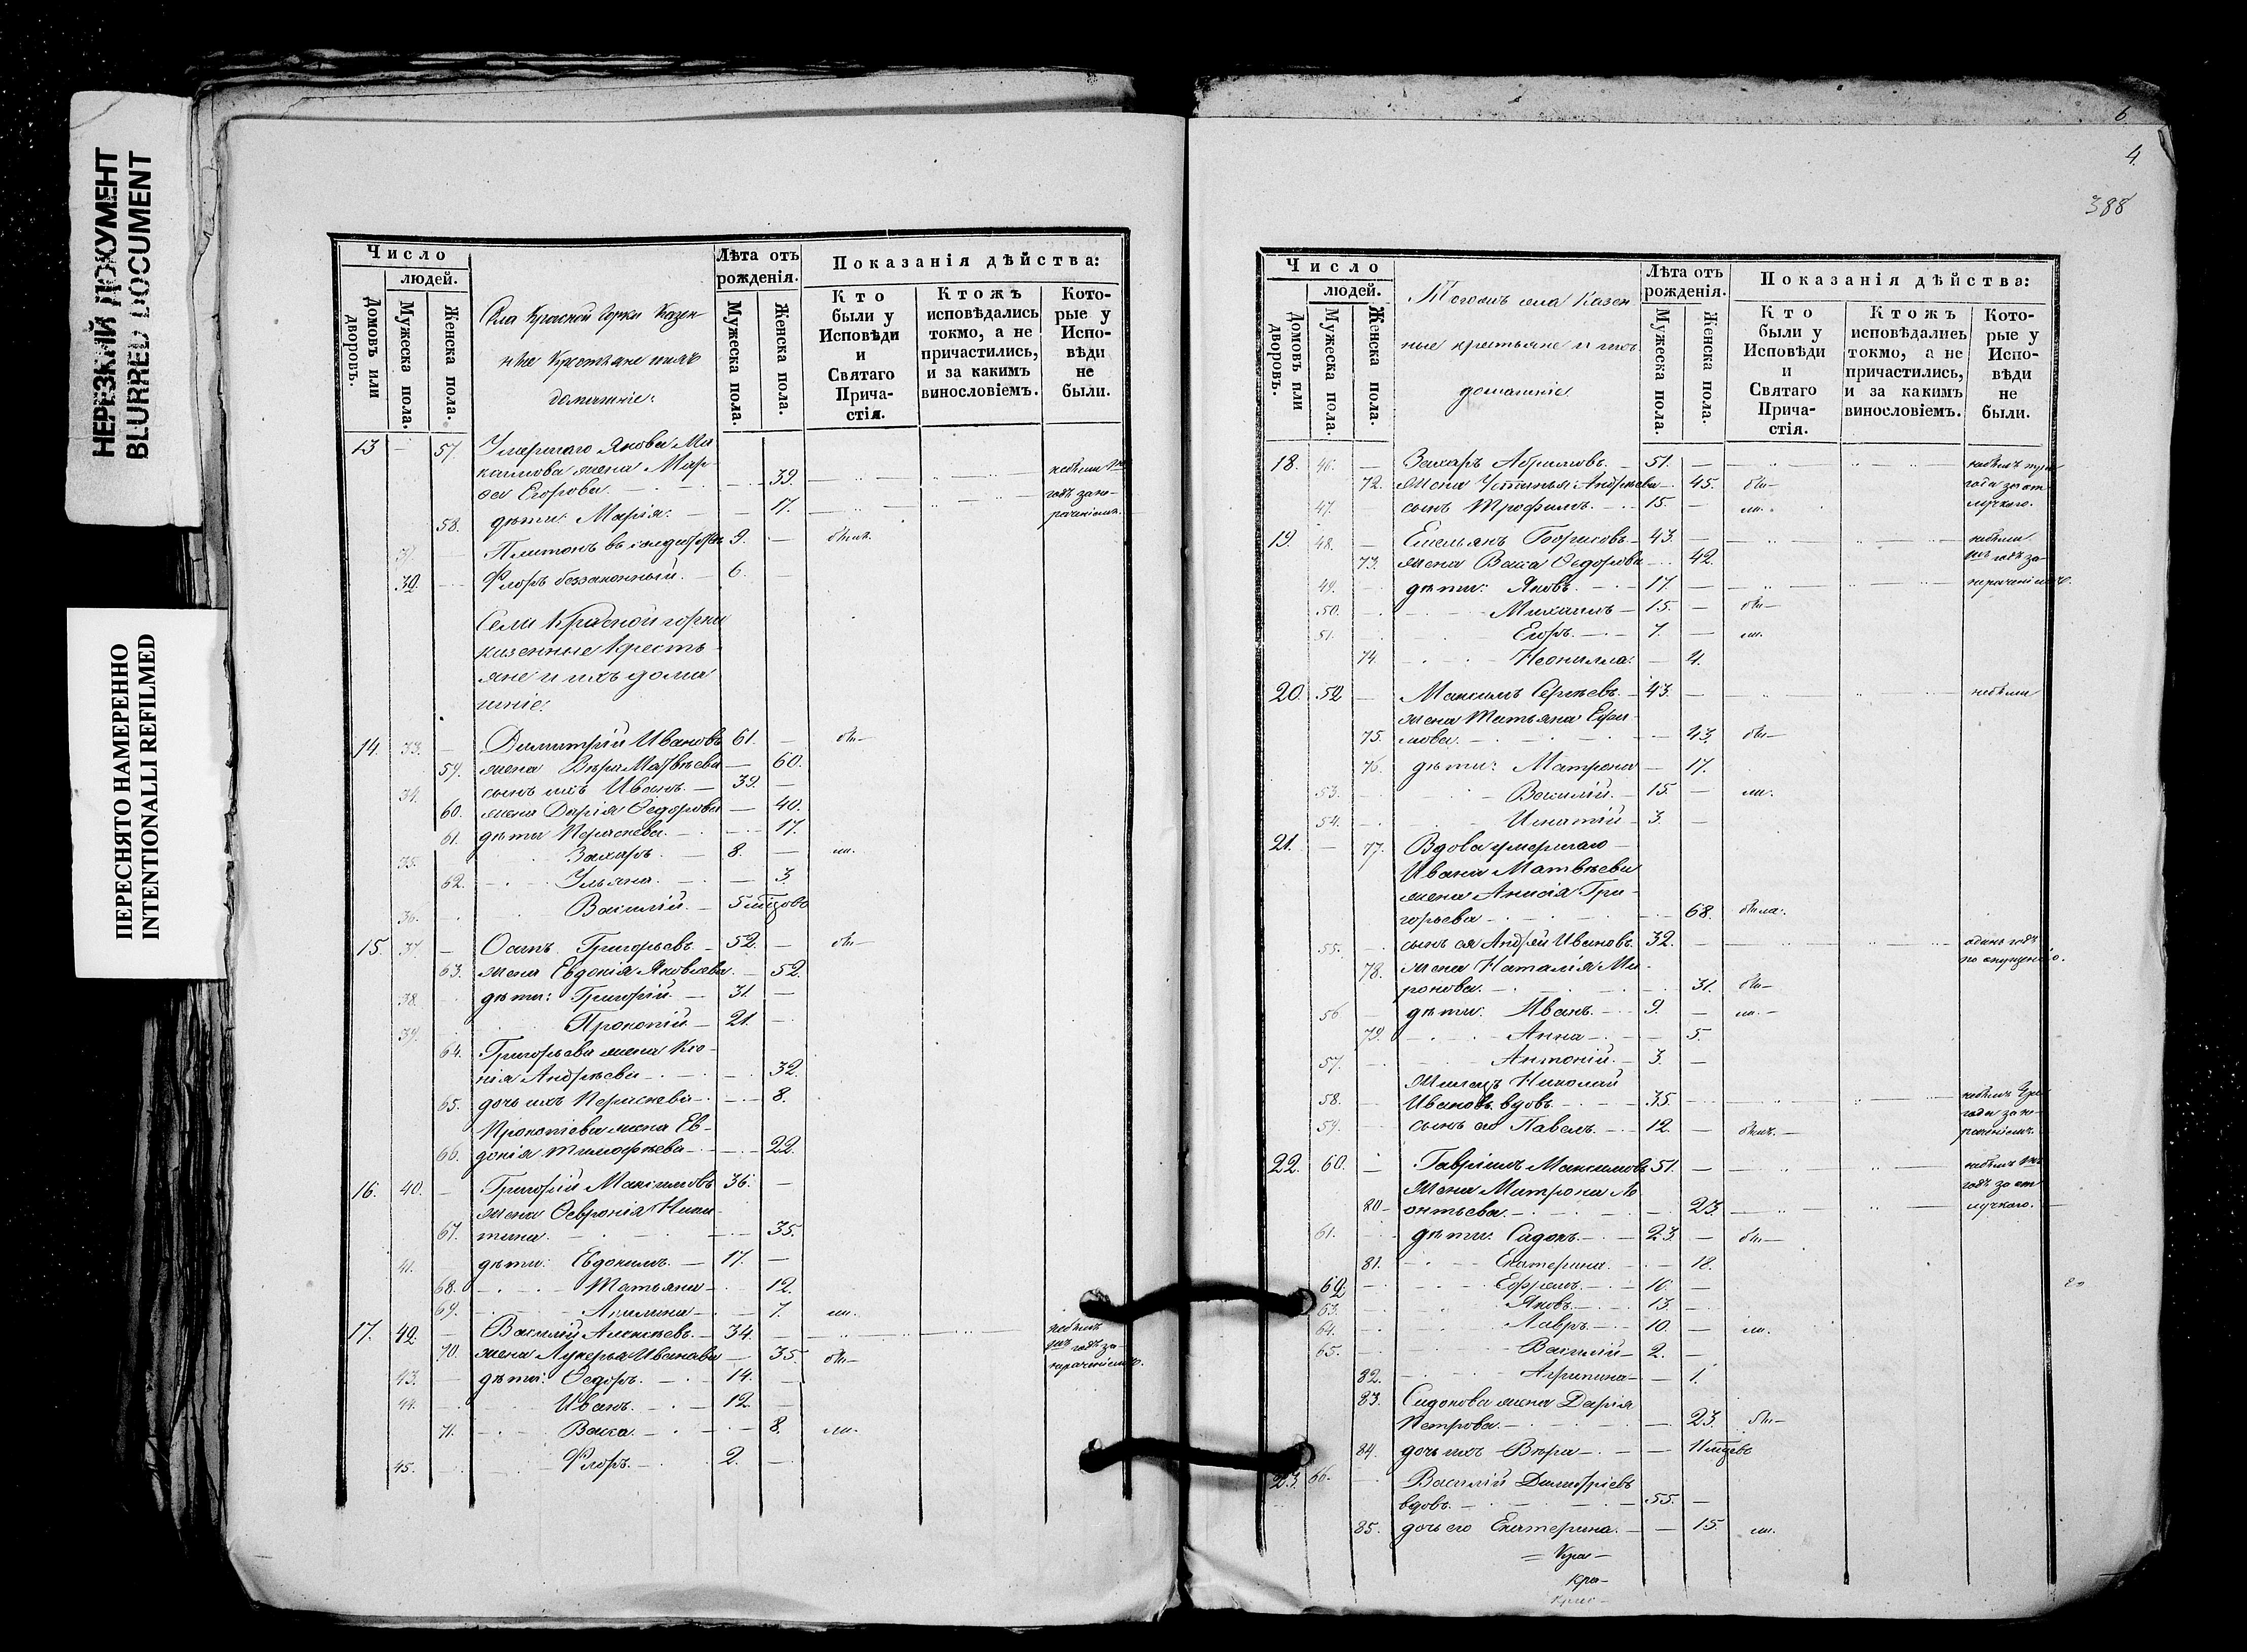 НЕРЕЗКИЙ ДОКУМЕНТ
BLURRED DOCUMENT
ПЕРЕСНЯТО НАМЕРЕННО
INTENTIONALLI REFILMED
Число
людей.
Домовъ или дворовъ.
Мужеска пола.
Женска пола.
Села Красной Горки Казен-
ные Крестьяне и ихъ
домашніе:
Лѣта отъ рожденія.
Мужеска пола.
Женска пола.
Показанія дѣйства:
Кто были у Исповѣди и Святаго Прича-стія.
Ктожъ исповѣдались токмо, а не причастились, и за какимъ винословіемъ.
Кото-рые у Испо-вѣди не были.
13 — 57 Умершаго Якова Ма-
каимова жена Мар-
ѳа Егорова. 39.
58. дѣти: Марія. 17.
Платонъ 9. былъ.
Флоръ беззаконный. 6.
Села Красной горки
казенные кресть-
яне и ихъ дома
шніе:
14. 33. Димитрій Ивановъ 61. бы—
59. жена Вѣра Матвѣева 60.
34. сынъ ихъ Иванъ. 39.
60. жена Дарія Ѳедорова 40.
61. дѣти Параскева. 17.
35. Захаръ. 8. ли.
62. Ульяна. 3.
36. Василій. 5 мѣсцовъ
15. 37. Осипъ Григорьевъ. 52. бы—
63. жена Евдокія Яковлева. 52.
38. дѣти: Григорій. 31.
39. Прокопій 21.
64. Григорьева жена Ксе-
нія Андрѣева 32.
65. дочь ихъ Параскева 8.
Прокопіева жена Ев-
66. докія Тимофѣева 22.
16. 40. Григорій Максимовъ 36.
жена Ѳевронія Ники-
67. тина. 35.
41. дѣти: Евдокимъ. 17.
68. Татьяна 12.
69. Акилина 7. ли.
17. 42. Василій Алексѣевъ. 34. небылъ
70. жена Лукерья Иванова 35. бы—
43. дѣти: Ѳедоръ. 14.
44. Иванъ. 12.
71. Васса. 8. ли.
45. Флоръ. 2.
6
4.
388
Число
людей.
Домовъ или дворовъ.
Мужеска пола.
Женска пола.
Тогожъ села Казен-
ные крестьяне и ихъ
домашніе
Лѣта отъ рожденія.
Мужеска пола.
Женска пола.
Показанія дѣйства:
Кто были у Исповѣди и Святаго Прича-стія.
Ктожъ исповѣдались токмо, а не причастились, и за какимъ винословіемъ.
Кото-рые у Испо-вѣди не были.
18. 46. Захаръ Абрамовъ. 51. небылъ три
72. жена Устинья Андрѣева 45. бы— года за от-
47. сынъ Трофимъ. 15. ли. лучкою.
19. 48. Емельянъ Борисовъ. 43. небыли
73. жена Васса Ѳедорова 42. годъ за-
49. дѣти: Яковъ. 17. нераченіемъ.
50. Михаилъ 15. бы—
51. Егоръ. 7. ли.
74. Неонилла. 4.
20. 52. Максимъ Сергѣевъ. 43. небылъ
жена Татьяна Ефи-
75. мова. 43. бы—
76. дѣти: Матрена 17.
53. Василій. 15. ли.
54. Игнатій 3.
21. — 77. Вдова умершаго
Ивана Матвѣева
жена Анисія Гри-
горьева 68. была.
55. сынъ ея Андрей Ивановъ. 32. одинъ годъ
78. жена Наталія Ми- по опущенію.
ронова. 31. бы—
56 дѣти: Иванъ. 9. ли.
79. Анна 5.
57. Антоній. 3.
Николай
58. Ивановъ вдовъ. 35. небылъ
59. сынъ его Павелъ. 12. былъ.
22. 60. Гавріилъ Максимовъ 51. небылъ
жена Матрона Ле годъ за от
80 онтьева. 23. лучкою.
61. дѣти: Сидонъ. 23. бы—
81. Екатерина. 18.
62 Ефремъ. 16.
63. Яковъ. 13.
64. Лавръ. 10. ли.
65. Василій 2.
82. Агрипина 1.
83. Сидонова жена Дарія
Петрова. 23. бы—
84. дочь ихъ Вѣра 11 мѣсцевъ
23. 66. Василій Димитріевъ
вдовъ. 55.
85. дочь его Екатерина. 15. ли.
= Кра—
Кра—